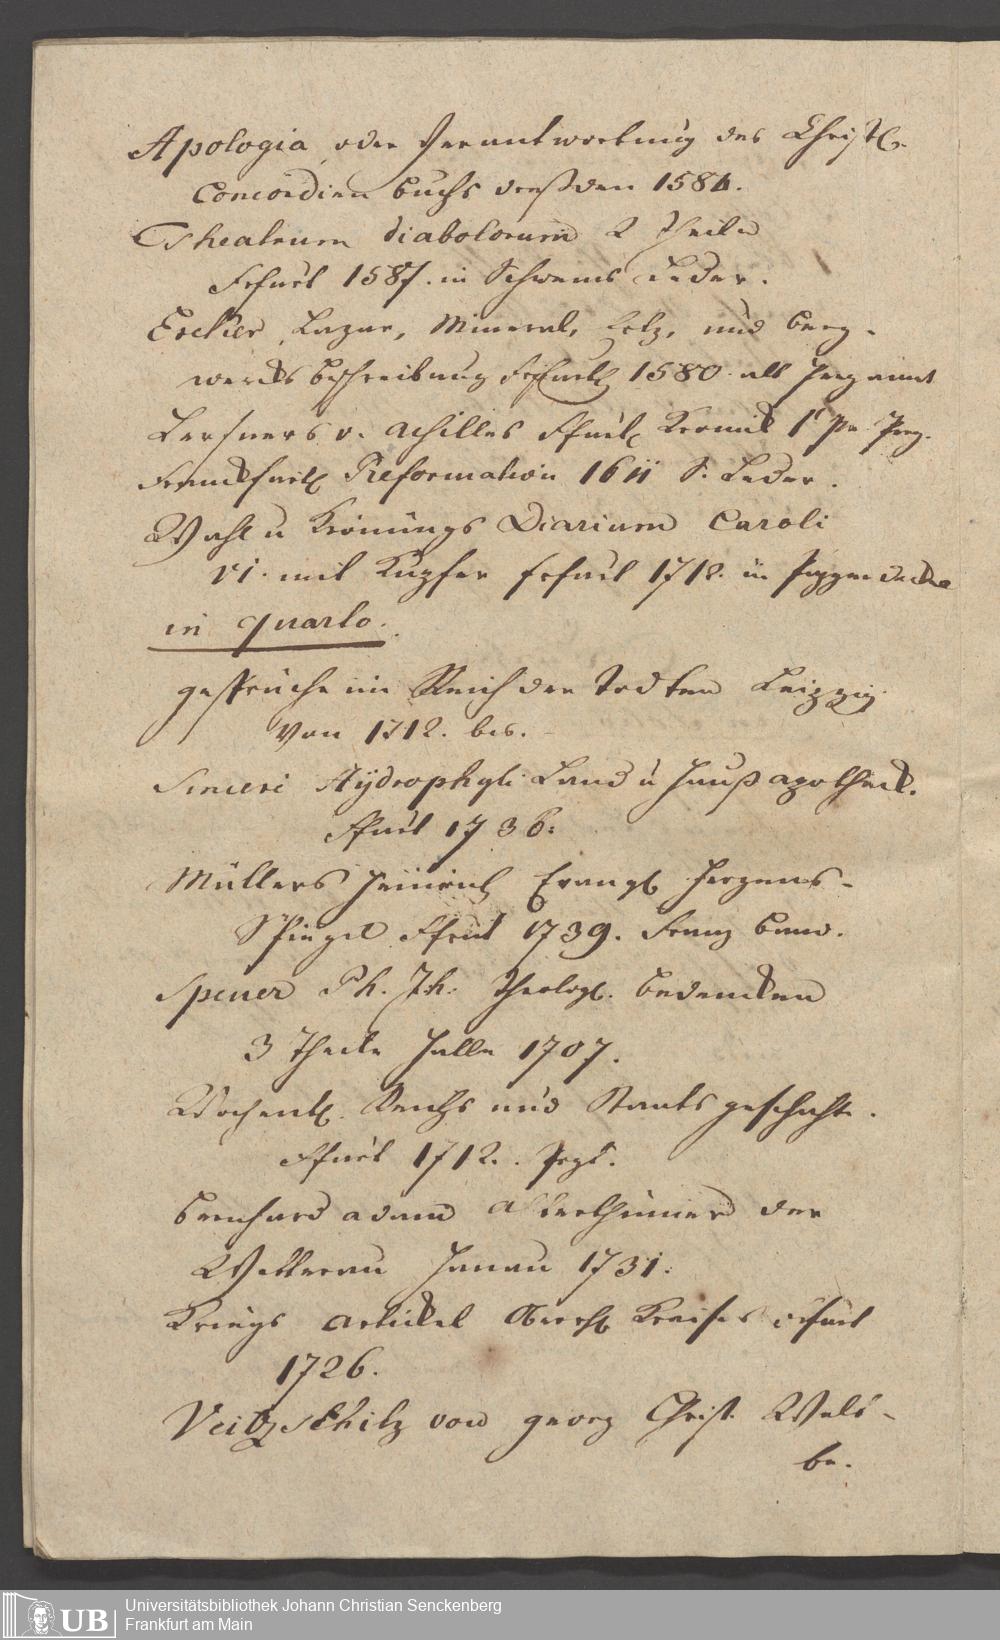 Apologia, oder Verantwortung des Christl.
Concordien Buchs dreßden 1584.
Theatrum diabolorum 2 Theile
Frfurt 1587. in Schweins Leder.
Ercker, Lazar, Mineral, Ertz, und Berg-
wercks Beschreibung Frfurt 1580. alt Pergament
Lersners v. Achilles Ffurt Kronick 1r Pergt.
Franckfurt Reformation 1611 S. Leder.
Wahl u Krönungs Diarium Caroli
VI. mit Kupfer frfurt 1712. in Pappendeckel
in quarto.
gespräche im Reich der Todten Leipzig
von 1712. bis.
Sinceri Hÿdrophyli Land u Hauß apotheck.
Ffurt 1736.
Müllers Heinrich Evangl Herzens-
Spiegel Ffurt 1739. Franz Band.
Spener Ph. Jh. Theolog. Bedencken
3 Theile Halle 1707.
Wochentl. Reichs und Staats geschichte.
Ffurt 1712. Pergt.
Bernhard adam Alterthümer der
Wetterau Hanau 1731.
Kriegs Artickel Oberrh Kreises frfurt
1726.
Veitzschitz von georg Christ. Wal-
be.
Universitätsbibliothek Johann Christian Senckenberg
Frankfurt am Main
UB